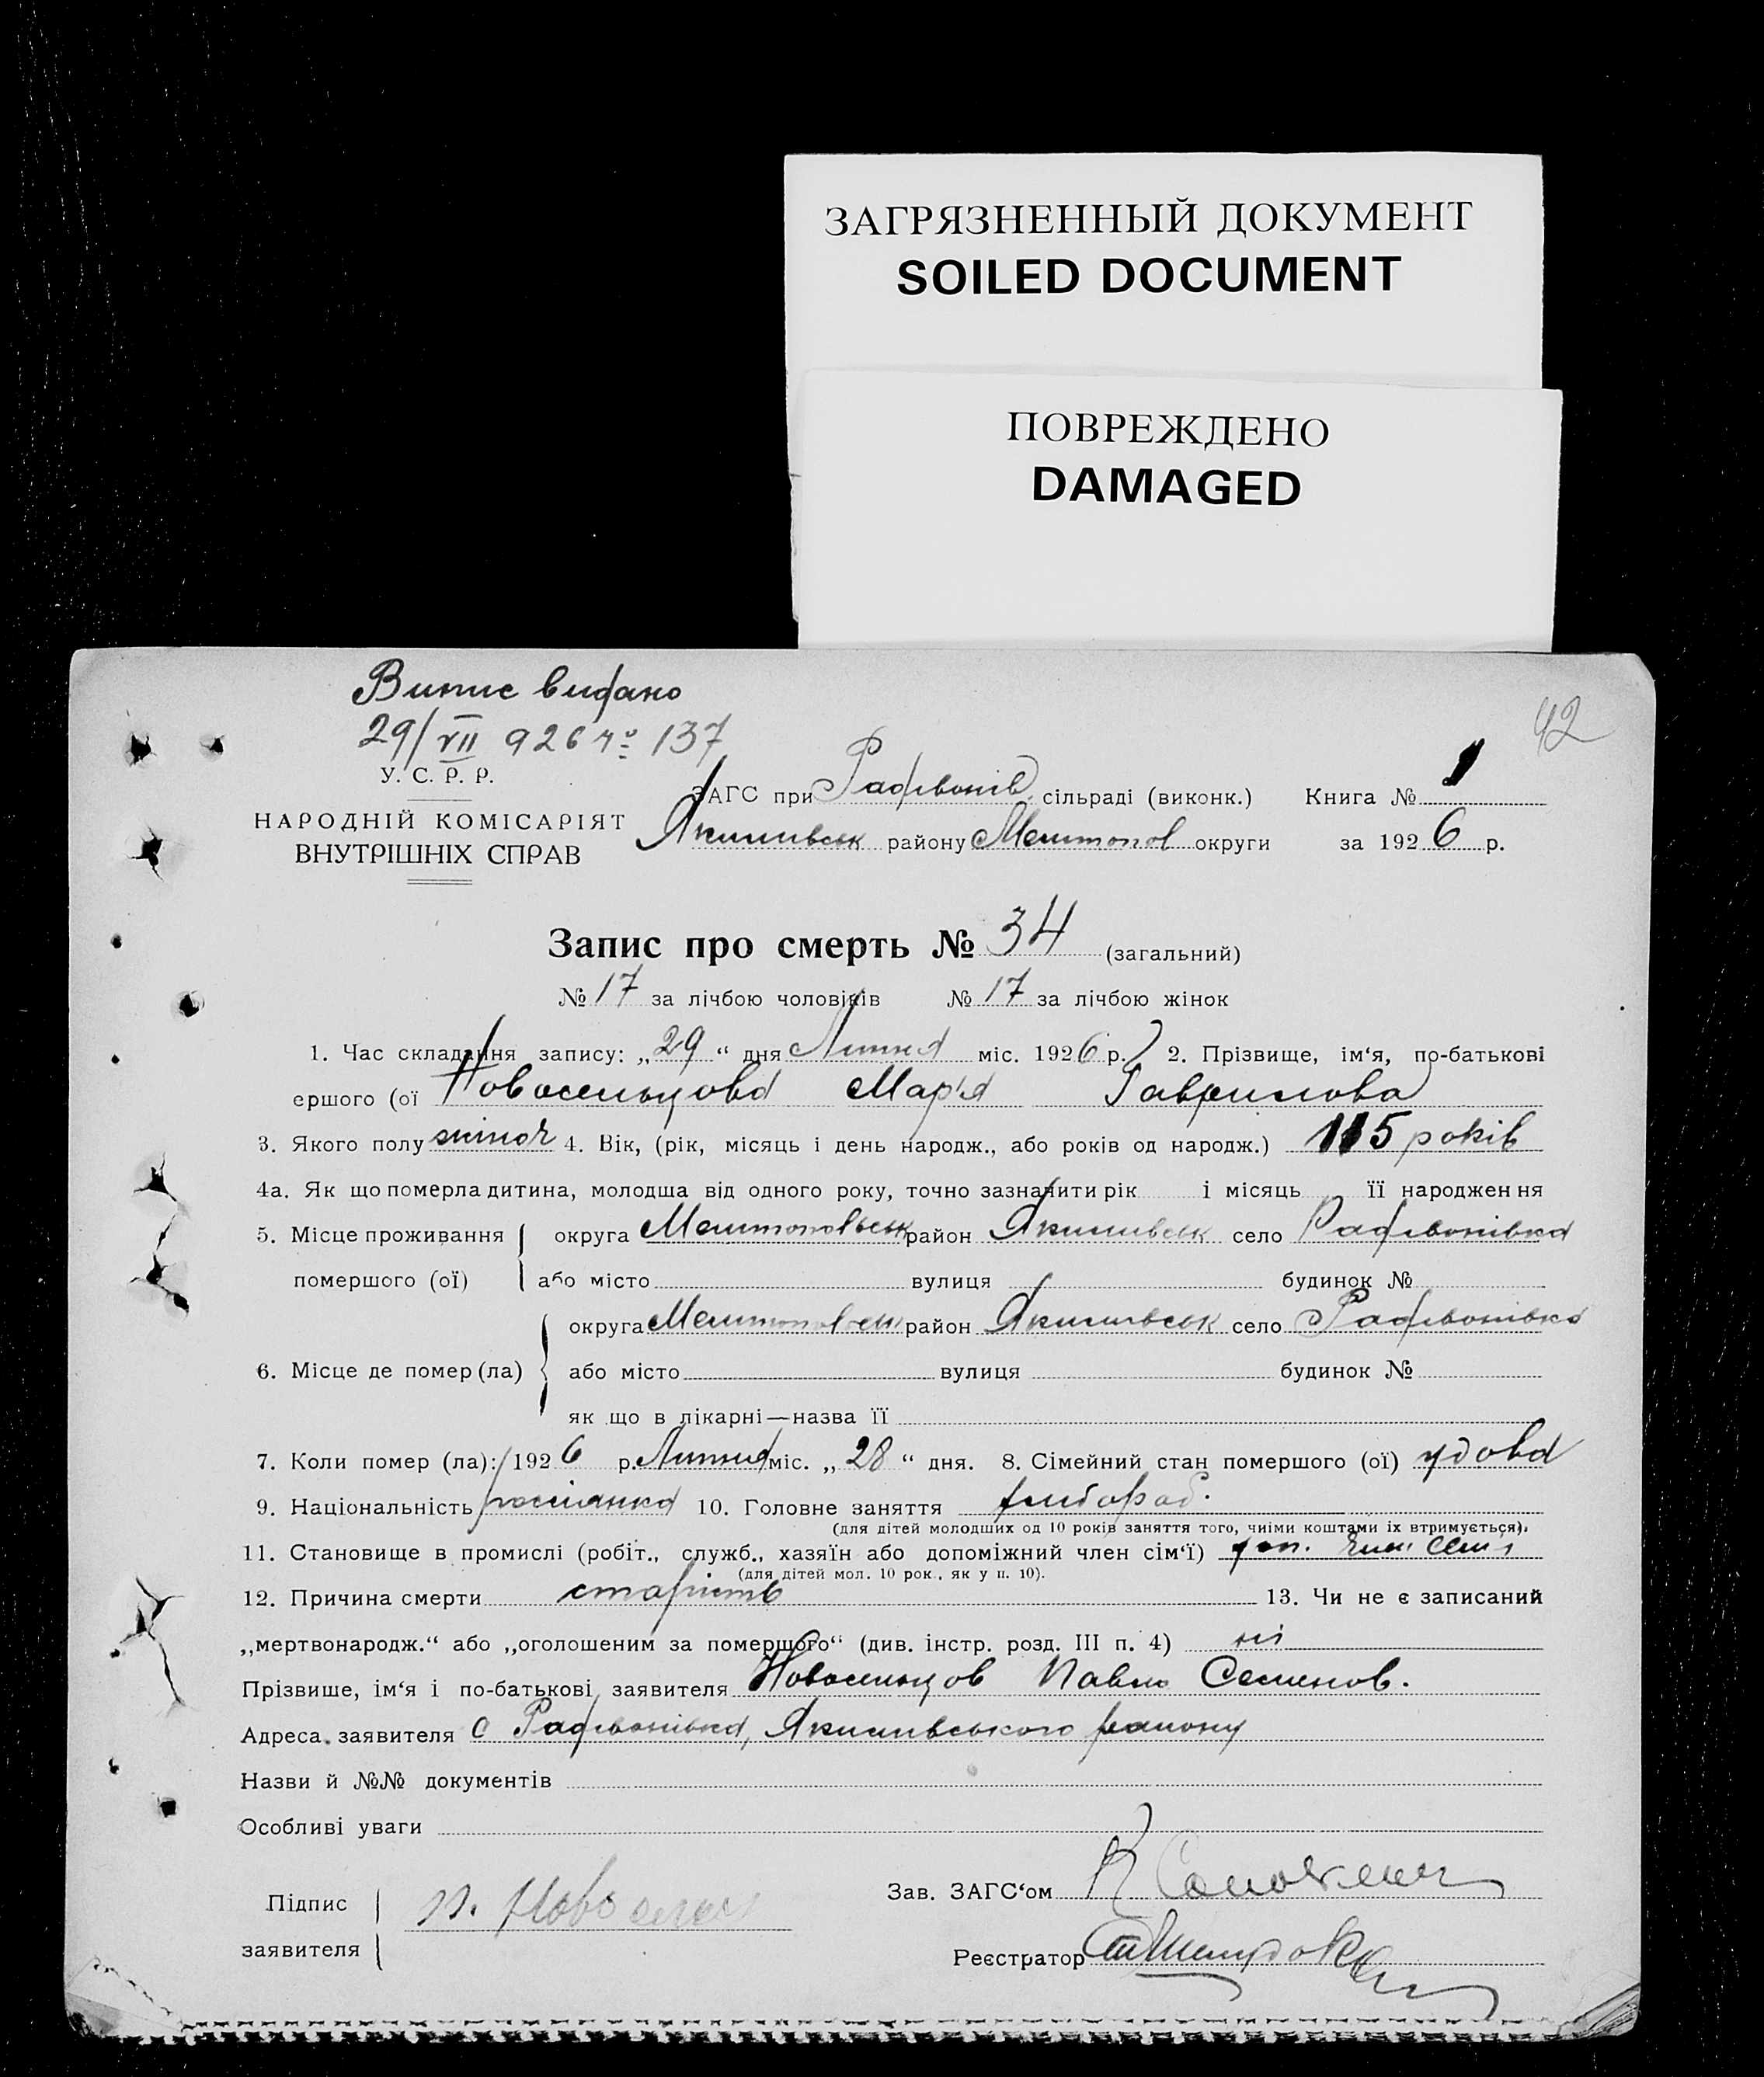 ЗАГРЯЗНЕННЫЙ ДОКУМЕНТ
SOILED DOCUMENT
ПОВРЕЖДЕНО
DAMAGED
Випис видано
29/VII 926 № 137
42
У. С. Р. Р.
НАРОДНІЙ КОМІСАРІЯТ
ВНУТРІШНІХ СПРАВ
ЗАГС при Радівонів. сільраді (виконк.) Книга № 1
Якимивськ району Мелитопол округи за 1926 р.
Запис про смерть № 34 (загальний)
№ 17 за лічбою чоловіків № 17 за лічбою жінок
1. Час складання запису: „29“ дня Липня міс. 1926 р. 2. Прізвище, ім‘я, по-батькові
ершого (ої Новосельцова Мар'я Гаврилова
3. Якого полу жіноч 4. Вік, (рік, місяць і день народж., або років од народж.) 115 років
4а. Як що померла дитина, молодша від одного року, точно зазначити рік і місяць її народження
5. Місце проживання округа Мелитопольськ район Якимивськ село Радивонівка
помершого (ої) або місто вулиця будинок №
округа Мелитопольськ район Якимивськ село Радивонівка
6. Місце де помер (ла) або місто вулиця будинок №
як що в лікарні—назва її
7. Коли помер (ла): 1926 р. Липня міс. „28“ дня. 8. Сімейний стан помершого (ої) удова
9. Національність россіянка 10. Головне заняття хлібороб.
(для дітей молодших од 10 років заняття того, чиїми коштами їх втримується).
11. Становище в промислі (робіт., служб., хазяїн або допоміжний член сім‘ї) доп. член сем'ї
(для дітей мол. 10 рок., як у п. 10).
12. Причина смерти старість 13. Чи не є записаний
„мертвонародж.“ або „оголошеним за помершого“ (див. інстр. розд. III п. 4) ні
Прізвише, ім‘я і по-батькові заявителя Новосельцов Павло Семенов.
Адреса заявителя с Радивонівка, Якимивського району
Назви й №№ документів
Особливі уваги
Підпис
заявителя
П.
Зав. ЗАГС‘ом
Реєстратор